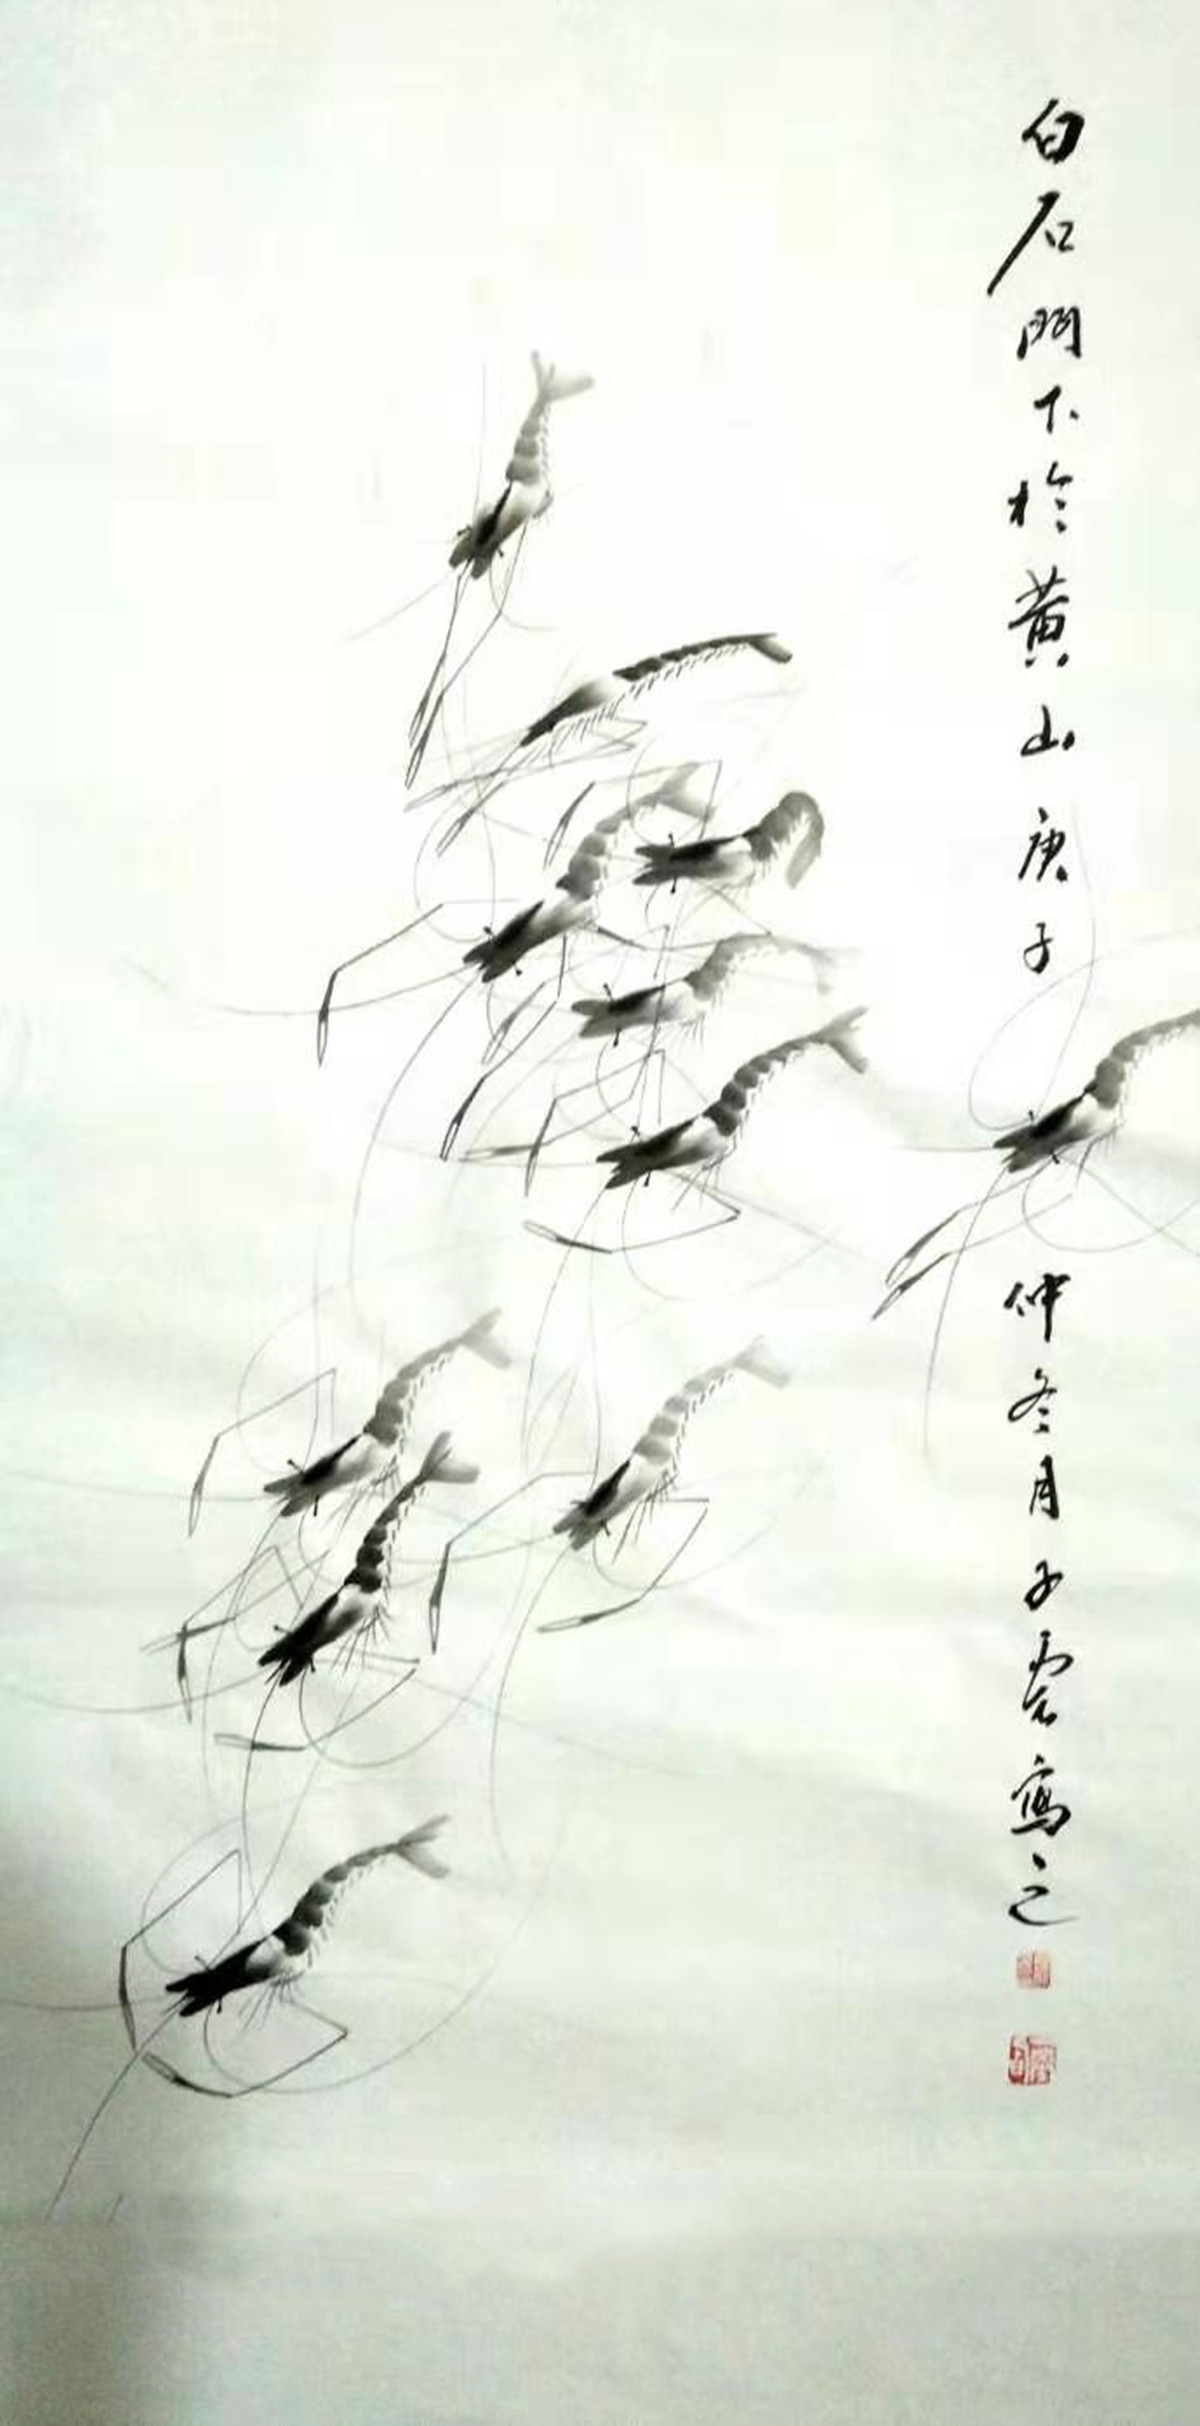 白石門下於黄山庚子
仲冬月子雲寫之